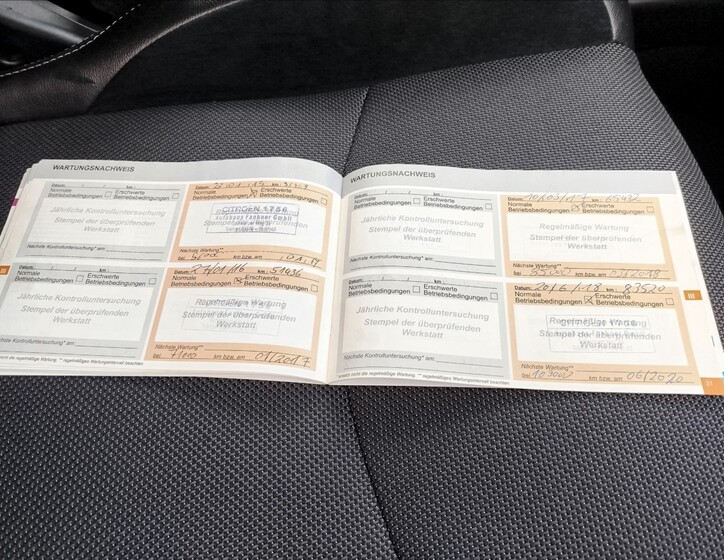 WARTUNGSNACHWEIS
Datum: km:
Normale Betriebsbedingungen Erschwerte Betriebsbedingungen
Jährliche Kontrolluntersuchung
Stempel der überprüfenden
Werkstatt
Nächste Kontrolluntersuchung* am:
Datum: km:
Normale Betriebsbedingungen Erschwerte Betriebsbedingungen
CITROEN
Nächste Wartung**
bei km bzw. am
Datum: km:
Normale Betriebsbedingungen Erschwerte Betriebsbedingungen
Jährliche Kontrolluntersuchung
Stempel der überprüfenden
Werkstatt
Nächste Kontrolluntersuchung* am:
Datum: km: 51436
Normale Betriebsbedingungen Erschwerte Betriebsbedingungen
Regelmäßige Wartung
Stempel der überprüfenden
Werkstatt
Nächste Wartung**
bei km bzw. am 01/2017
nicht die regelmäßige Wartung ** regelmäßiges Wartungsintervall beachten
III
WARTUNGSNACHWEIS
Datum: km:
Normale Betriebsbedingungen Erschwerte Betriebsbedingungen
Jährliche Kontrolluntersuchung
Stempel der überprüfenden
Werkstatt
Nächste Kontrolluntersuchung* am:
Datum: km: 65432
Normale Betriebsbedingungen Erschwerte Betriebsbedingungen
Regelmäßige Wartung
Stempel der überprüfenden
Werkstatt
Nächste Wartung**
bei km bzw. am
Datum: km:
Normale Betriebsbedingungen Erschwerte Betriebsbedingungen
Jährliche Kontrolluntersuchung
Stempel der überprüfenden
Werkstatt
Nächste Kontrolluntersuchung* am:
Datum: 20/6/18 km: 83520
Normale Betriebsbedingungen Erschwerte Betriebsbedingungen
Regelmäßige Wartung
Stempel der überprüfenden
Werkstatt
Nächste Wartung**
bei km bzw. am 06/2020
ersetzt nicht die regelmäßige Wartung ** regelmäßiges Wartungsintervall beachten
III